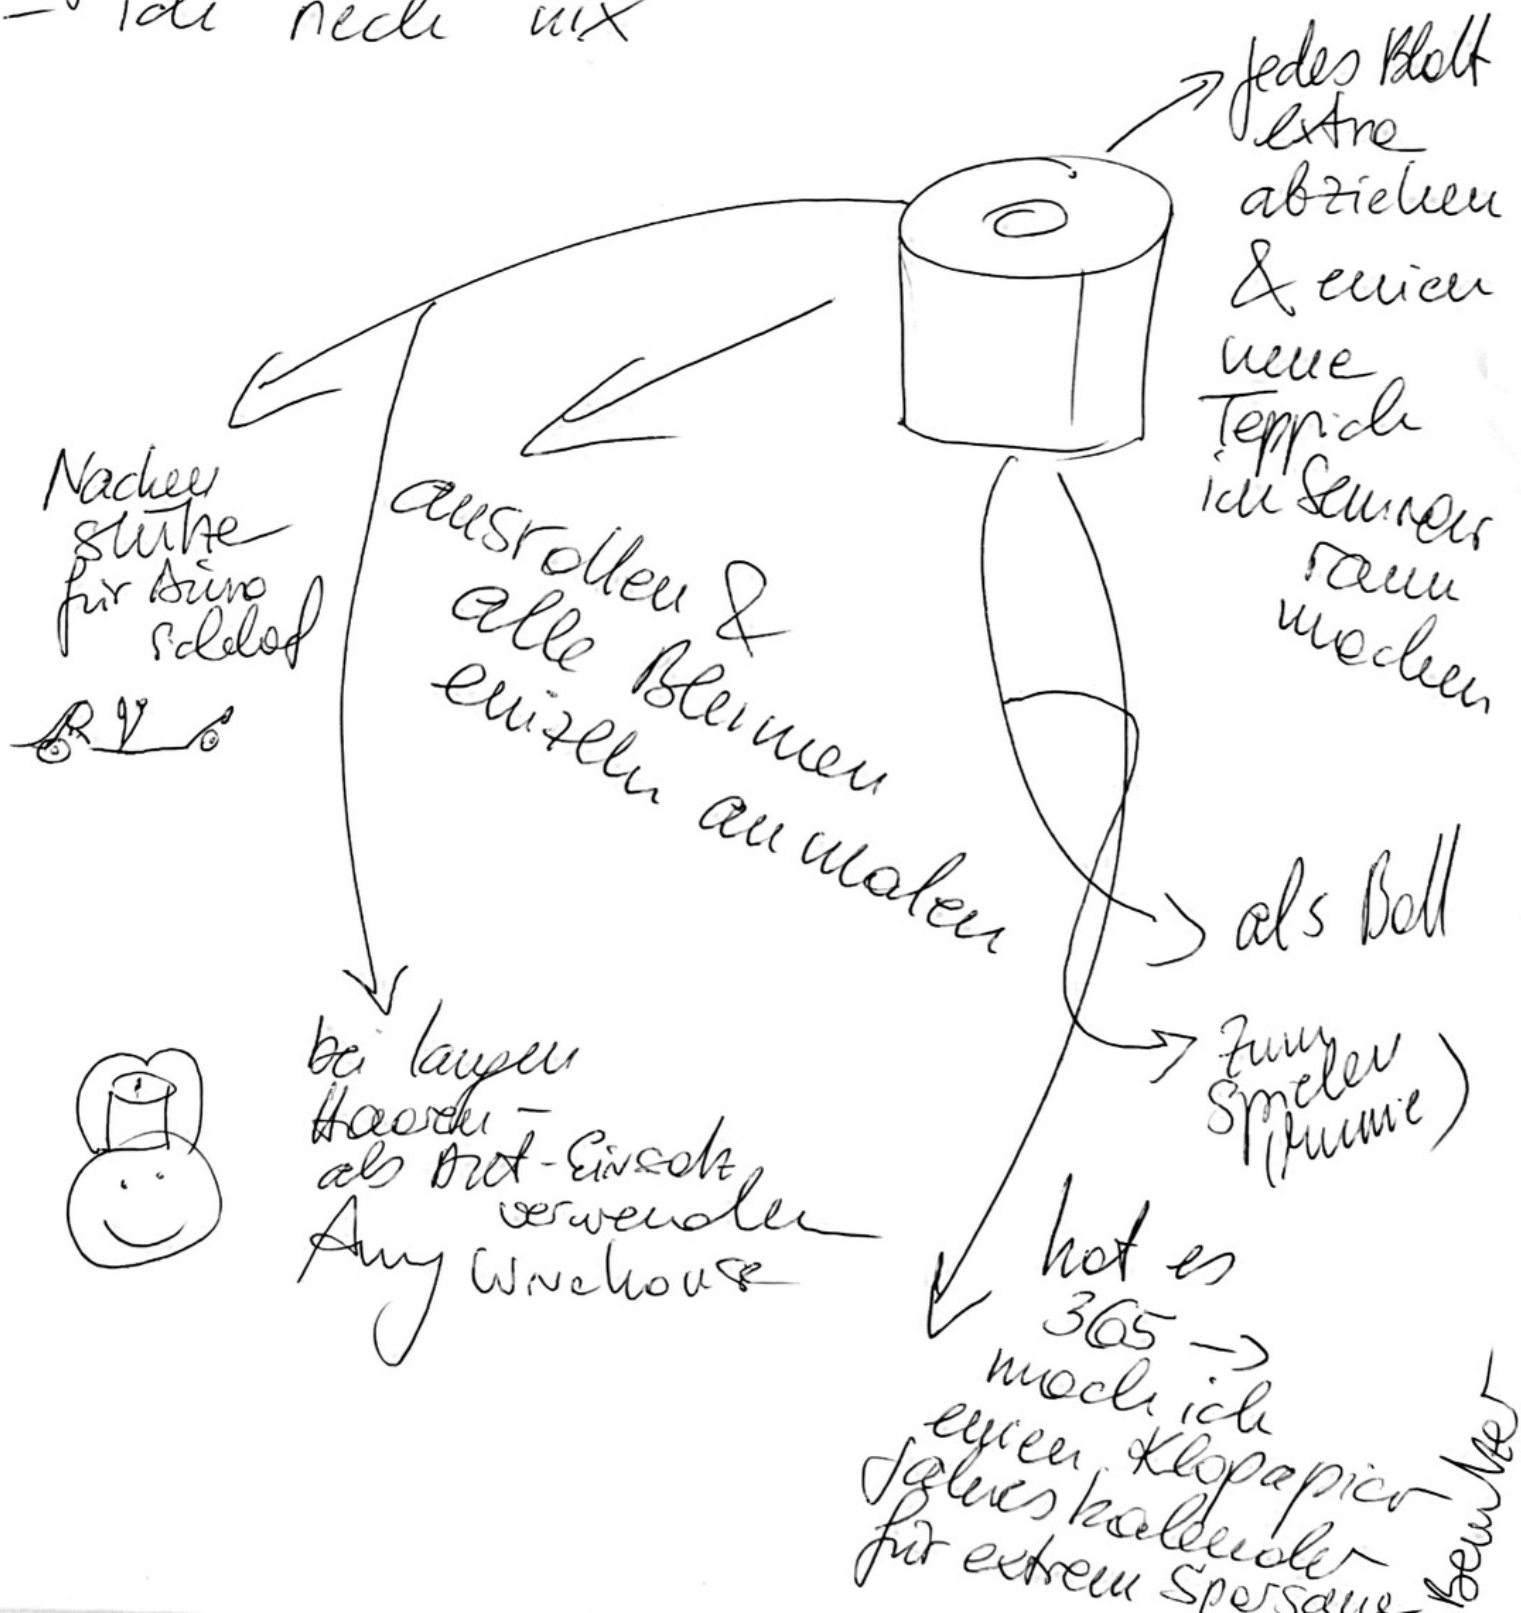 - Ich riech nix
jedes Blatt
extra
abziehen
& einen
neue
Teppich
im Seminar
raum
machen
Nacken
stütze
für Büro
schlaf
ausrollen &
alle Blumen
einzeln anmalen
als Ball
zum
Spielen
bei langen
Haaren -
als Dutt-Einsatz
verwenden
Amy Winehouse
hat es
365 →
mach ich
einen Klopapier
Jahreskalender
für extrem Sparsame
Benutzer